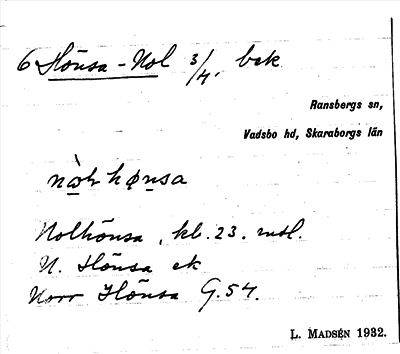 6 Hönsa - Nol 3/4. bek
Ransbergs sn,
Vadsbo hd, Skaraborgs län
Nolhönsa, kl. 23. mtl.
N. Hönsa ek
Norr Hönsa G. 54.
L. MADSÉN 1932.